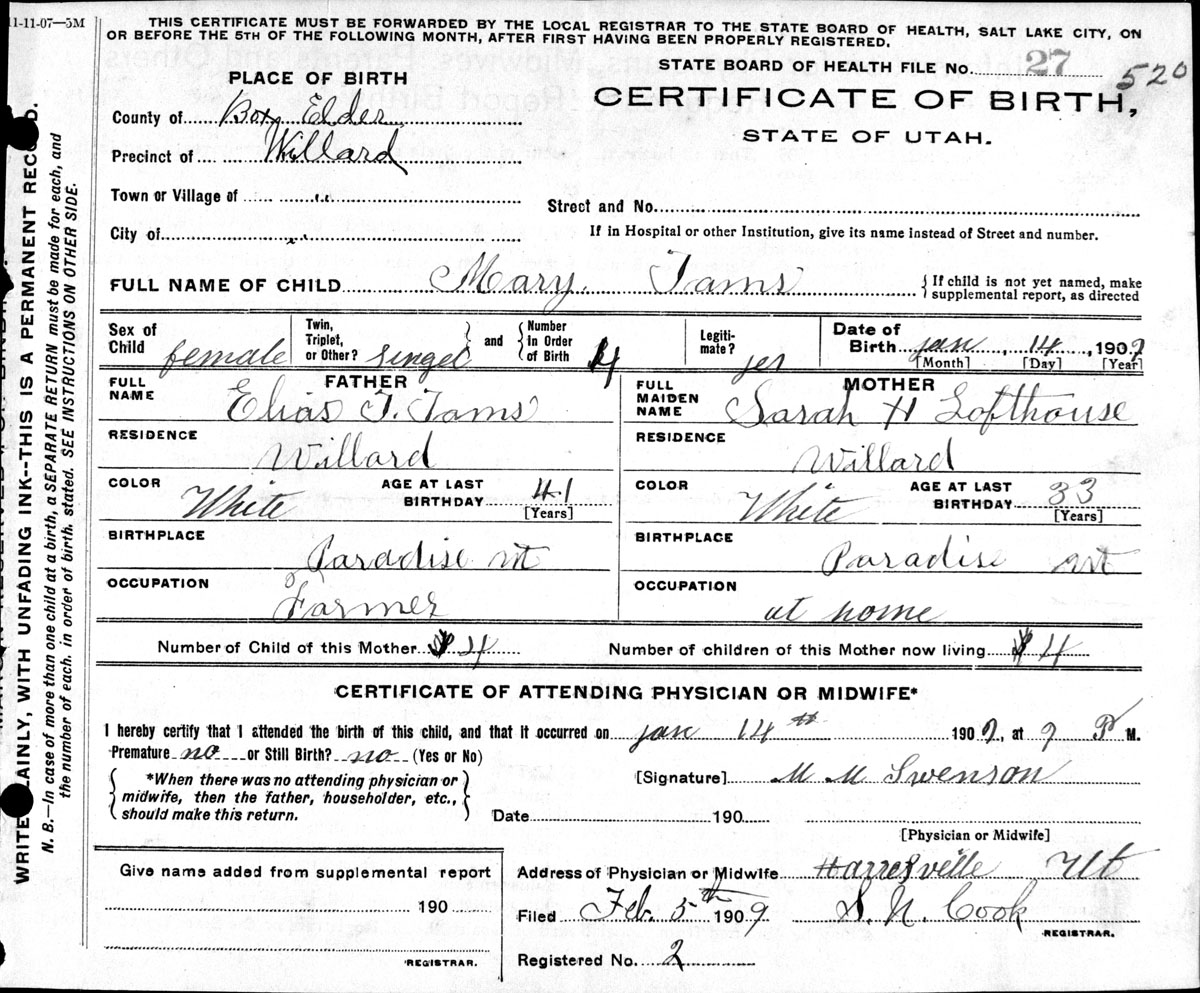 11-11-07—5M
THIS CERTIFICATE MUST BE FORWARDED BY THE LOCAL REGISTRAR TO THE STATE BOARD OF HEALTH, SALT LAKE CITY, ON
OR BEFORE THE 5TH OF THE FOLLOWING MONTH, AFTER FIRST HAVING BEEN PROPERLY REGISTERED.
STATE BOARD OF HEALTH FILE No. 27 520
CERTIFICATE OF BIRTH,
STATE OF UTAH.
PLACE OF BIRTH
County of Box Elder
Precinct of Willard
Town or Village of "
City of "
Street and No.
If in Hospital or other Institution, give its name instead of Street and number.
FULL NAME OF CHILD Mary. Tams
{If child is not yet named, make
supplemental report, as directed
Sex of Child female
Twin, Triplet, or Other? singel } and { Number in Order of Birth 4
Legiti-mate? yes
Date of Birth jan, 14, 1909
[Month] [Day] [Year]
FATHER
FULL NAME Elias T. Tams
RESIDENCE Willard
COLOR White AGE AT LAST BIRTHDAY 41 [Years]
BIRTHPLACE Paradise ut
OCCUPATION Farmer
MOTHER
FULL MAIDEN NAME Sarah H Lofthouse
RESIDENCE Willard
COLOR White AGE AT LAST BIRTHDAY 33 [Years]
BIRTHPLACE Paradise ut
OCCUPATION at home
Number of Child of this Mother 4 Number of children of this Mother now living 4
CERTIFICATE OF ATTENDING PHYSICIAN OR MIDWIFE*
I hereby certify that I attended the birth of this child, and that it occurred on jan 14th 1909, at 9 P M.
Premature no or Still Birth? no (Yes or No)
{*When there was no attending physician or
midwife, then the father, householder, etc.,
should make this return.}
[Signature] M M Swenson
Date 190
[Physician or Midwife]
Give name added from supplemental report
190
REGISTRAR.
Address of Physician or Midwife Harresville Ut
Filed Feb. 5th 1909 S. N. Cook
REGISTRAR.
Registered No. 2
WRITE PLAINLY, WITH UNFADING INK--THIS IS A PERMANENT RECORD.
N. B.—In case of more than one child at a birth, a SEPARATE RETURN must be made for each, and
the number of each, in order of birth, stated. SEE INSTRUCTIONS ON OTHER SIDE.